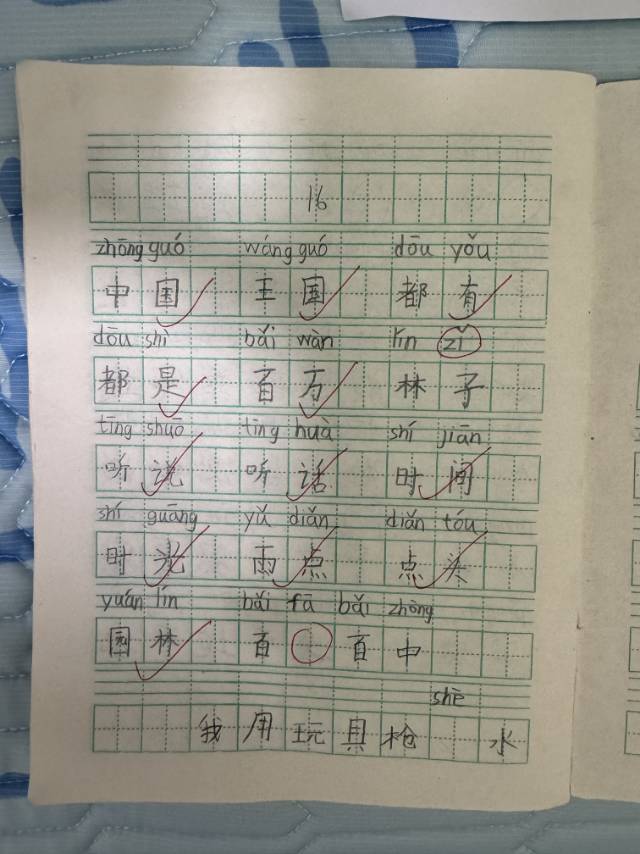 16
zhōng guó wáng guó dōu yǒu
中国 王国 都有
dōu shì bǎi wàn lín zǐ
都是 百万 林子
tīng shuō tīng huà shí jiān
听说 听话 时间
shí guāng yǔ diǎn diǎn tóu
时光 雨点 点头
yuán lín bǎi fā bǎi zhòng
园林 百 百中
shè
我用玩具枪 水